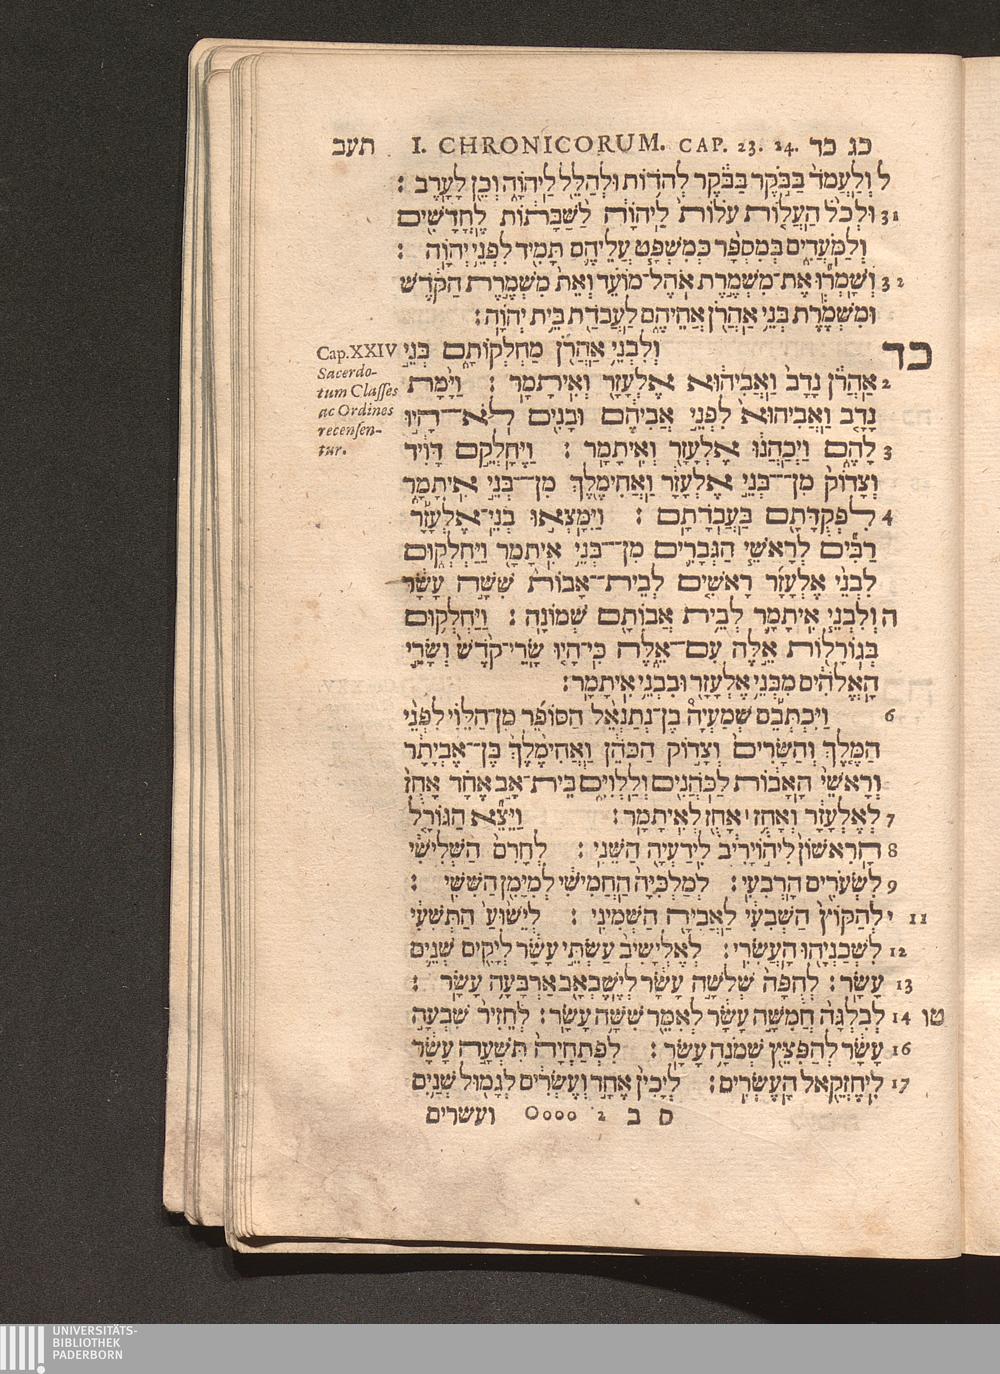 תעב I. CHRONICORUM. CAP. 23. 24. כג כד
ל וְלַעֲמֹד בַּבֹּקֶר בַּבֹּקֶר לְהֹדוֹת וּלְהַלֵּל לַיהוָֹה וְכֵן לָעָרֶב :
31 וּלְכֹל הַעֲלוֹת עֹלוֹת לַיהוָֹה לַשַּׁבָּתוֹת לֶחֳדָשִׁים
וְלַמֹּעֲדִים בְּמִסְפָּר כְּמִשְׁפָּט עֲלֵיהֶם תָּמִיד לִפְנֵי יְהוָֹה :
32 וְשָׁמְרוּ אֶת־מִשְׁמֶרֶת אֹהֶל־מוֹעֵד וְאֵת מִשְׁמֶרֶת הַקֹּדֶשׁ
וּמִשְׁמֶרֶת בְּנֵי אַהֲרֹן אֲחֵיהֶם לַעֲבֹדַת בֵּית יְהוָֹה :
כד וְלִבְנֵי אַהֲרֹן מַחְלְקוֹתָם בְּנֵי
Cap. XXIV
Sacerdo-
tum Classes
ac Ordines
recensen-
tur.
2 אַהֲרֹן נָדָב וַאֲבִיהוּא אֶלְעָזָר וְאִיתָמָר : וַיָּמָת
נָדָב וַאֲבִיהוּא לִפְנֵי אֲבִיהֶם וּבָנִים לֹא־הָיוּ
3 לָהֶם וַיְכַהֲנוּ אֶלְעָזָר וְאִיתָמָר : וַיֶּחָלְקֵם דָּוִיד
וְצָדוֹק מִן־בְּנֵי אֶלְעָזָר וַאֲחִימֶלֶךְ מִן־בְּנֵי אִיתָמָר
4 לִפְקֻדָּתָם בַּעֲבֹדָתָם : וַיִּמָּצְאוּ בְנֵי־אֶלְעָזָר
רַבִּים לְרָאשֵׁי הַגְּבָרִים מִן־בְּנֵי אִיתָמָר וַיַּחְלְקוּם
לִבְנֵי אֶלְעָזָר רָאשִׁים לְבֵית־אָבוֹת שִׁשָּׁה עָשָׂר
ה וְלִבְנֵי אִיתָמָר לְבֵית אֲבוֹתָם שְׁמוֹנָה : וַיַּחְלְקוּם
בְּגוֹרָלוֹת אֵלֶּה עִם־אֵלֶּה כִּי־הָיוּ שָׂרֵי־קֹדֶשׁ וְשָׂרֵי
הָאֱלֹהִים מִבְּנֵי אֶלְעָזָר וּבִבְנֵי אִיתָמָר :
6 וַיִּכְתְּבֵם שְׁמַעְיָה בֶן־נְתַנְאֵל הַסּוֹפֵר מִן־הַלֵּוִי לִפְנֵי
הַמֶּלֶךְ וְהַשָּׂרִים וְצָדוֹק הַכֹּהֵן וַאֲחִימֶלֶךְ בֶּן־אֶבְיָתָר
וְרָאשֵׁי הָאָבוֹת לַכֹּהֲנִים וְלַלְוִיִּם בֵּית־אָב אֶחָד אָחֻז
7 לְאֶלְעָזָר וְאָחֻז ׀ אָחֻז לְאִיתָמָר : וַיֵּצֵא הַגּוֹרָל
8 הָרִאשׁוֹן לִיהוֹיָרִיב לִידַעְיָה הַשֵּׁנִי : לְחָרִם הַשְּׁלִישִׁי
9 לִשְׂעֹרִים הָרְבִעִי : לְמַלְכִּיָּה הַחֲמִישִׁי לְמִיָּמִן הַשִּׁשִּׁי :
11 י לְהַקּוֹץ הַשְּׁבִעִי לַאֲבִיָּה הַשְּׁמִינִי : לְיֵשׁוּעַ הַתְּשִׁעִי
12 לִשְׁכַנְיָהוּ הָעֲשִׂרִי : לְאֶלְיָשִׁיב עַשְׁתֵּי עָשָׂר לְיָקִים שְׁנֵים
13 עָשָׂר : לְחֻפָּה שְׁלֹשָׁה עָשָׂר לְיֶשֶׁבְאָב אַרְבָּעָה עָשָׂר :
טו 14 לְבִלְגָּה חֲמִשָּׁה עָשָׂר לְאִמֵּר שִׁשָּׁה עָשָׂר : לְחֵזִיר שִׁבְעָה
16 עָשָׂר לְהַפִּצֵּץ שְׁמֹנָה עָשָׂר : לִפְתַחְיָה תִּשְׁעָה עָשָׂר
17 לִיחֶזְקֵאל הָעֶשְׂרִים : לְיָכִין אֶחָד וְעֶשְׂרִים לְגָמוּל שְׁנַיִם
ס ב 2 Oooo ועשרים
UNIVERSITÄTS-
BIBLIOTHEK
PADERBORN